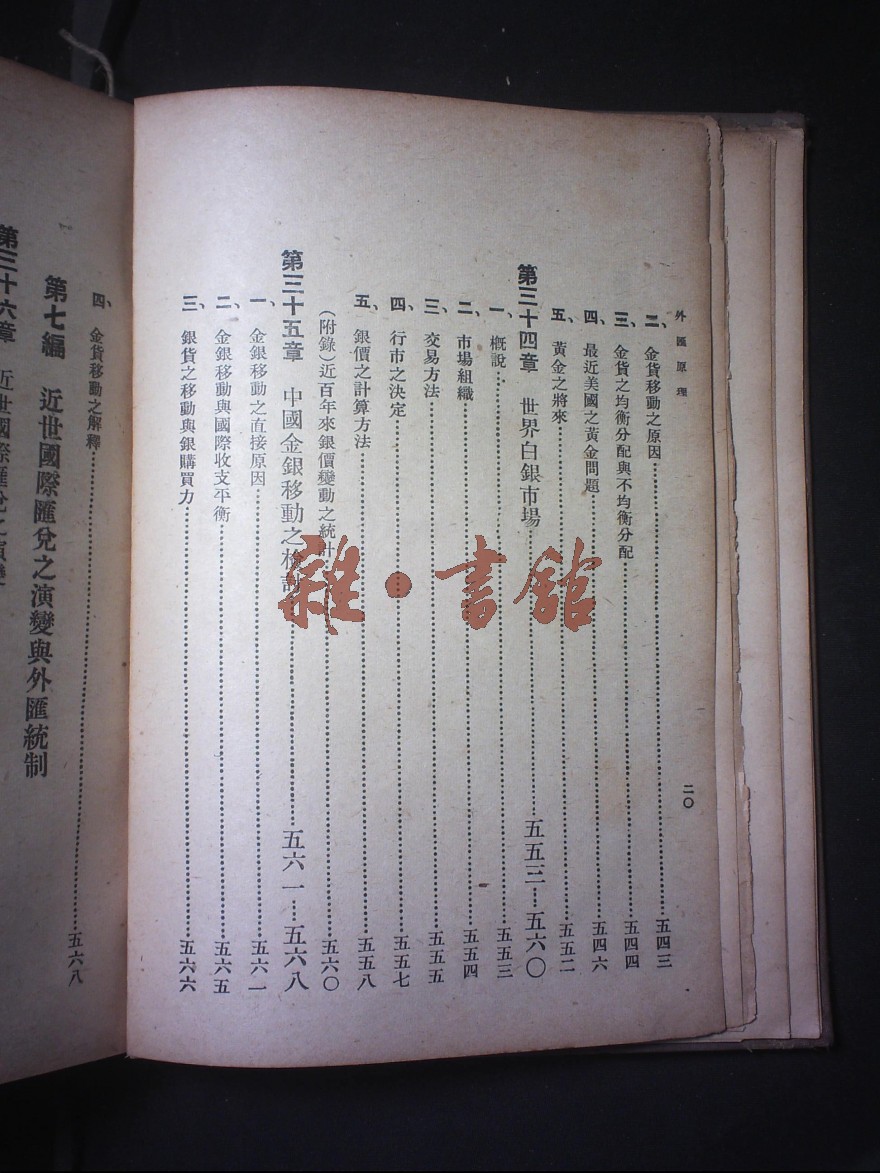 外匯原理
二〇
二、金貨移動之原因……五四三
三、金貨之均衡分配與不均衡分配……五四四
四、最近美國之黃金問題……五四六
五、黃金之將來……五五二
第三十四章 世界白銀市場……五五三—五六〇
一、概說……五五三
二、市場組織……五五四
三、交易方法……五五五
四、行市之決定……五五七
五、銀價之計算方法……五五八
(附錄)近百年來銀價變動之統計……五六〇
第三十五章 中國金銀移動之檢討……五六一—五六八
一、金銀移動之直接原因……五六一
二、金銀移動與國際收支平衡……五六五
三、銀貨之移動與銀購買力……五六六
四、金貨移動之解釋……五六八
第七編 近世國際匯兌之演變與外匯統制
第三十六章 近世國際匯兌之演變
雜·書館